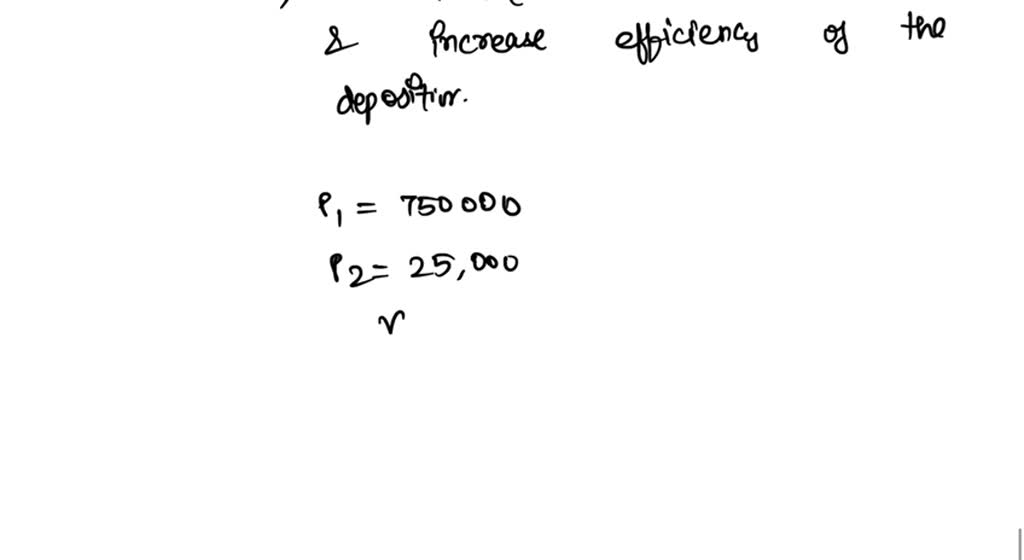 & increase efficiency of the
deposition.
P₁ = 750000
P₂ = 25,000
r